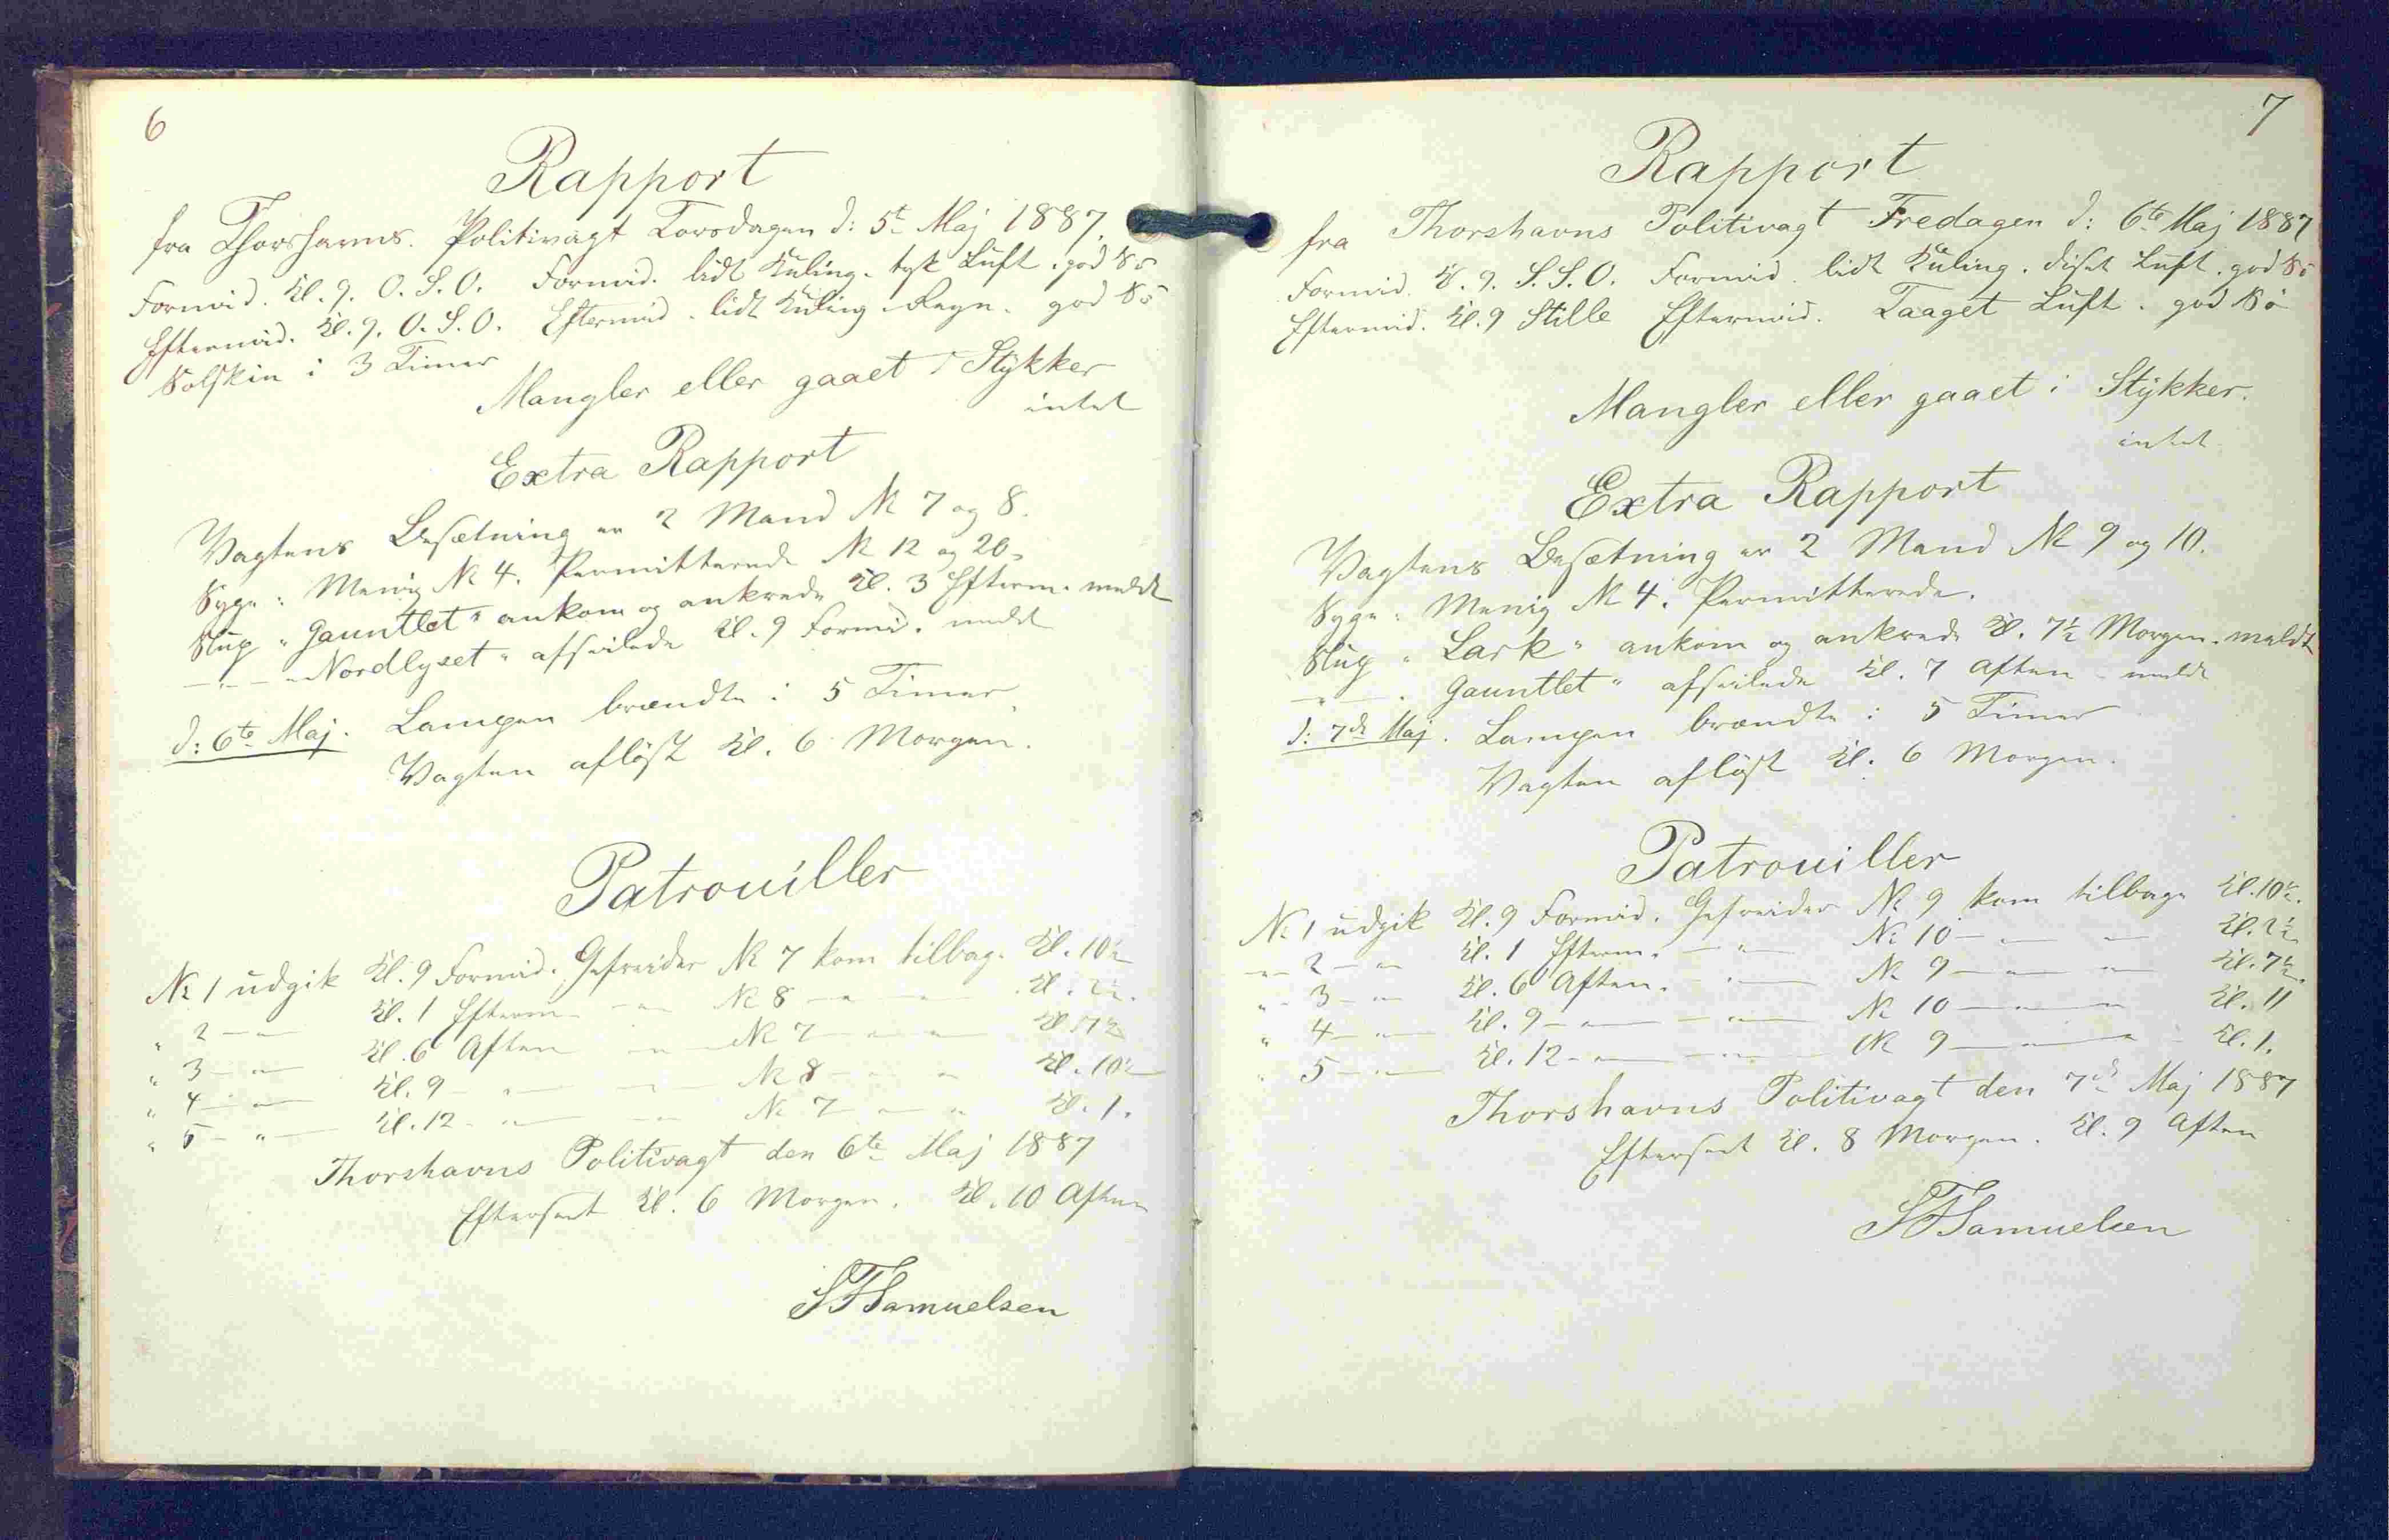 6
Rapport
fra Thorshavns Politivagt Torsdagen d: 5te Maj 1887.
Formid. Kl. 9. O. S. O. Formid. lidt Kuling. tyk Luft. god Sö
Eftermid. Kl. 9. O. S. O. Eftermid. lidt Kuling Regn. god Sö
Solskin i 3 Timer
Mangler eller gaaet i Stykker
intet
Extra Rapport
Vagtens Besætning er 2 Mand № 7 og 8.
Syge: Menig № 4. Permitterede № 12 og 20.
Slup "Gauntlet" ankom og ankrede Kl. 3 Efterm. meldt
— " — "Nordlyset" afseilede Kl. 9 Formid. meldt
d: 6te Maj. Lampen brændte i 5 Timer.
Vagten aflöst Kl. 6 Morgen.
Patrouiller
№ 1 udgik Kl. 9 Formid. Gefreider № 7 kom tilbage Kl. 10½
" 2 — " — Kl. 1 Efterm. — " — № 8 — " — " — Kl. 2½.
" 3 — " — Kl. 6 Aften — " — № 7 — " — " — Kl. 7½
" 4 — " — Kl. 9 — " — — " — № 8 — " — " — Kl. 10½
" 5 — " — Kl. 12 — " — — " — № 7 — " — " — Kl. 1.
Thorshavns Politivagt den 6te Maj 1887
Efterseet Kl. 6 Morgen. Kl. 10 Aften
SFSamuelsen
7
Rapport
fra Thorshavns Politivagt Fredagen d: 6te Maj 1887
Formid. Kl. 9. S. S. O. Formid. lidt Kuling. diset Luft. god Sö
Eftermid. Kl. 9 Stille Eftermid. Taaget Luft. god Sö
Mangler eller gaaet i Stykker.
intet
Extra Rapport
Vagtens Besætning er 2 Mand № 9 og 10.
Syge: Menig № 4. Permitterede.
Slup "Lark" ankom og ankrede Kl. 7½ Morgen. meldt
— " — "Gauntlet" afseilede Kl. 7 Aften — meldt
d: 7de Maj. Lampen brændte i 5 Timer
Vagten aflöst Kl. 6 Morgen.
Patrouiller
№ 1 udgik Kl. 9 Formid. Gefreider № 9 kom tilbage Kl. 10½.
— " — 2 — " — Kl. 1 Efterm. — " — № 10 — " — " — Kl. 2½
" 3 — " — Kl. 6 Aften. — " — № 9 — " — " — Kl. 7½.
" 4 — " — Kl. 9 — " — — " — № 10 — " — " — Kl. 11
" 5 — " — Kl. 12 — " — — " — № 9 — " — " — Kl. 1.
Thorshavns Politivagt den 7de Maj 1887
Efterseet Kl. 8 Morgen. Kl. 9 Aften
SFSamuelsen